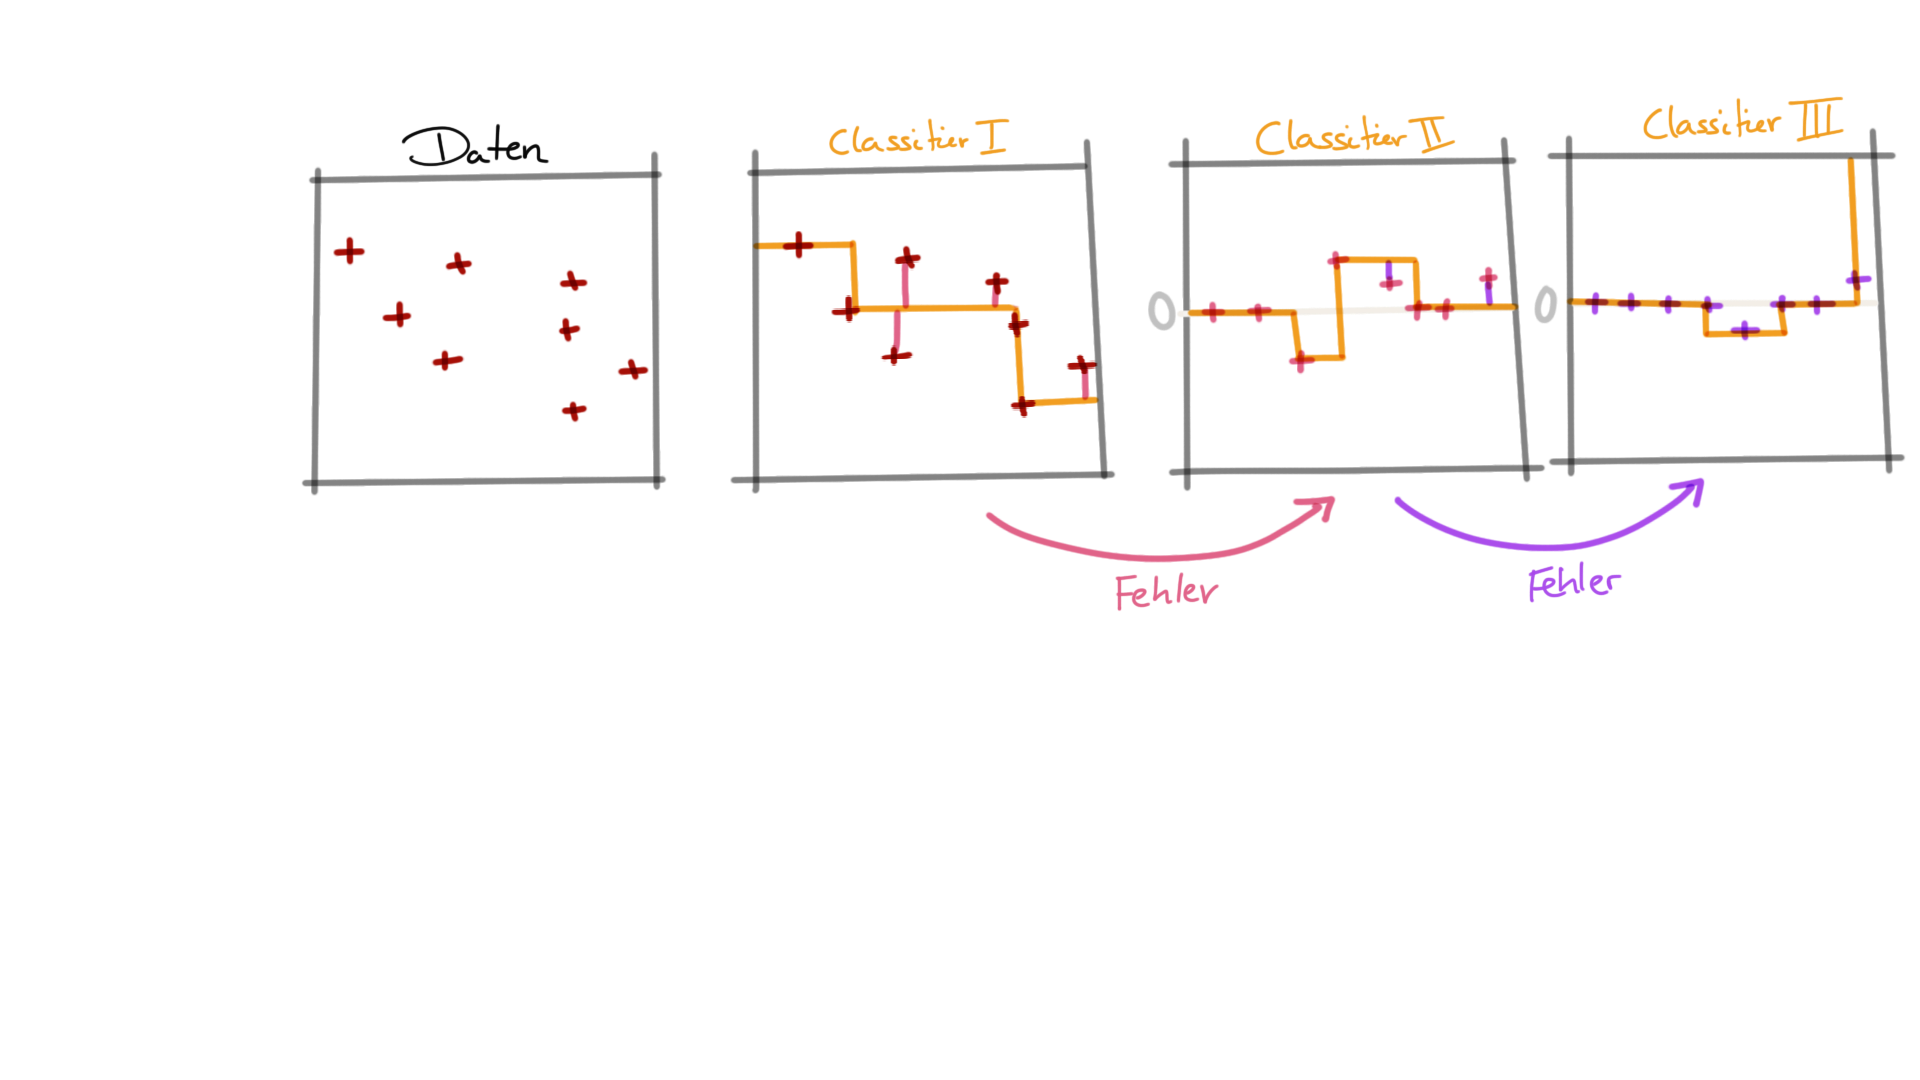 Daten
Classifier I
Classifier II
Classifier III
0
0
Fehler
Fehler